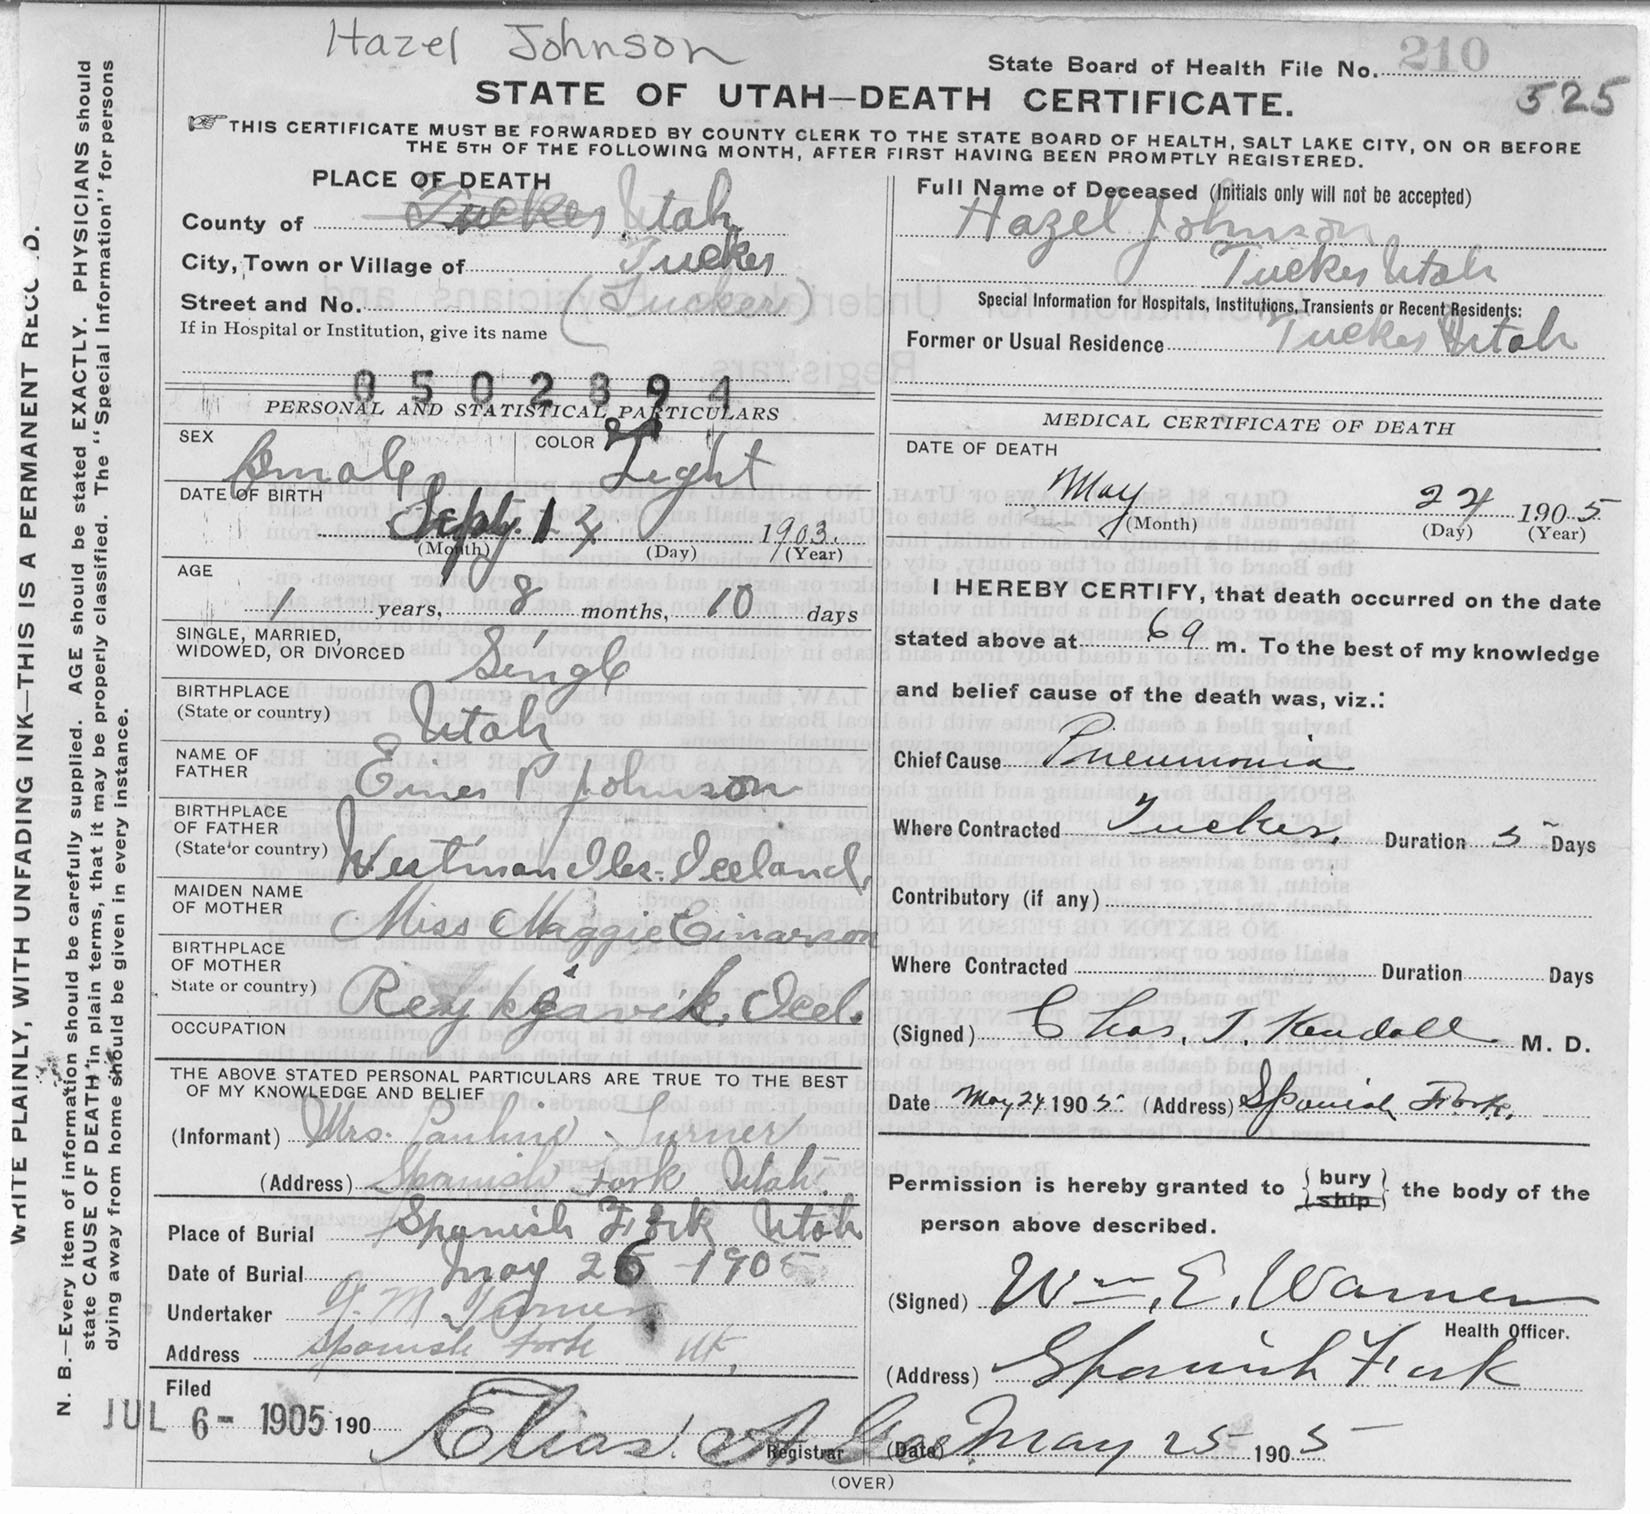 Hazel Johnson
State Board of Health File No. 210
525
STATE OF UTAH—DEATH CERTIFICATE.
THIS CERTIFICATE MUST BE FORWARDED BY COUNTY CLERK TO THE STATE BOARD OF HEALTH, SALT LAKE CITY, ON OR BEFORE
THE 5TH OF THE FOLLOWING MONTH, AFTER FIRST HAVING BEEN PROMPTLY REGISTERED.
WRITE PLAINLY, WITH UNFADING INK—THIS IS A PERMANENT
N. B.—Every item of information should be carefully supplied. AGE should be stated EXACTLY. PHYSICIANS should
state CAUSE OF DEATH in plain terms, that it may be properly classified. The "Special Information" for persons
dying away from home should be given in every instance.
PLACE OF DEATH
County of Tucker Utah
City, Town or Village of Tucker
Street and No. (Tucker)
If in Hospital or Institution, give its name
0502894
PERSONAL AND STATISTICAL PARTICULARS
SEX Female COLOR Light
DATE OF BIRTH
Sept. 14 1903.
(Month) (Day) (Year)
AGE
1 years, 8 months, 10 days
SINGLE, MARRIED,
WIDOWED, OR DIVORCED Single
BIRTHPLACE
(State or country) Utah
NAME OF
FATHER Einer P Johnson
BIRTHPLACE
OF FATHER
(State or country) Westman Iles. Iceland,
MAIDEN NAME
OF MOTHER Miss Maggie Einarson
BIRTHPLACE
OF MOTHER
State or country) Reykjavik, Icel.
OCCUPATION
THE ABOVE STATED PERSONAL PARTICULARS ARE TRUE TO THE BEST
OF MY KNOWLEDGE AND BELIEF
(Informant) Mrs. Pauline Turner
(Address) Spanish Fork Utah.
Place of Burial Spanish Fork Utah
Date of Burial May 26 1905
Undertaker
Address Spanish Fork Ut,
Filed
JUL 6- 1905 190 Elias A. Gee
Registrar
Full Name of Deceased (Initials only will not be accepted)
Hazel Johnson
Tucker Utah
Special Information for Hospitals, Institutions, Transients or Recent Residents:
Former or Usual Residence Tucker Utah
MEDICAL CERTIFICATE OF DEATH
DATE OF DEATH
May 24 1905
(Month) (Day) (Year)
I HEREBY CERTIFY, that death occurred on the date
stated above at 6 a m. To the best of my knowledge
and belief cause of the death was, viz.:
Chief Cause Pneumonia
Where Contracted Tucker, Duration 5 Days
Contributory (if any)
Where Contracted Duration Days
(Signed) Chas. J. Kendall M. D.
Date May 24 1905 (Address) Spanish Fork,
Permission is hereby granted to {bury} {ship} the body of the
person above described.
(Signed) Wm. E. Warner
Health Officer.
(Address) Spanish Fork
(Date) May 25 1905
(OVER)